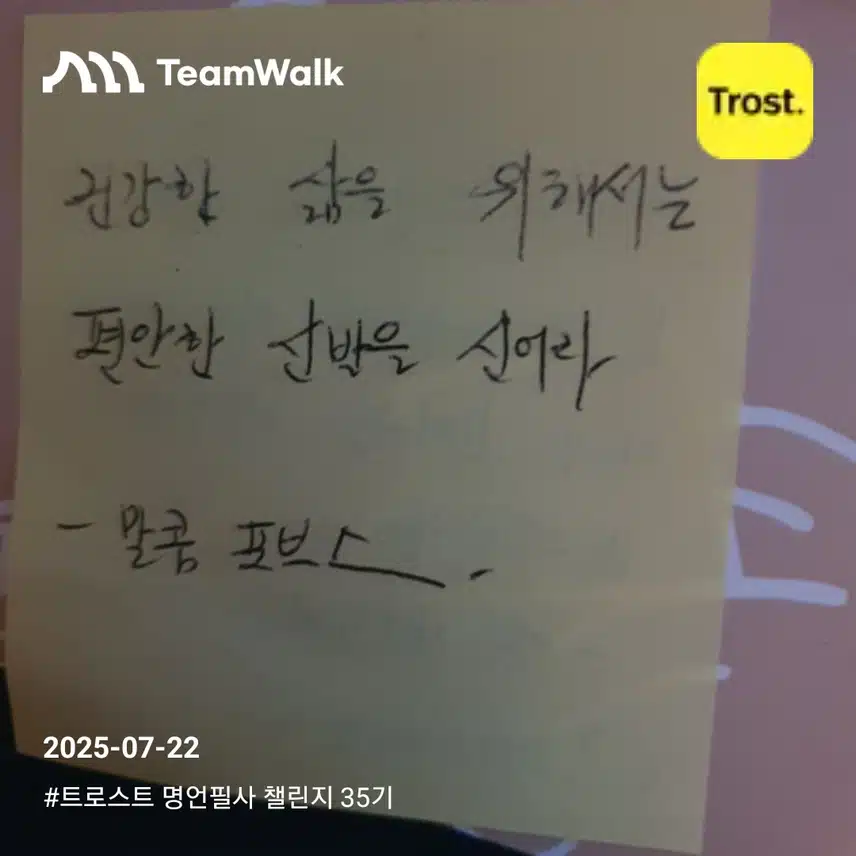 TeamWalk
Trost.
건강한 삶을 위해서는
편안한 신발을 신어라
- 말콤 포브스 -
2025-07-22
#트로스트 명언필사 챌린지 35기